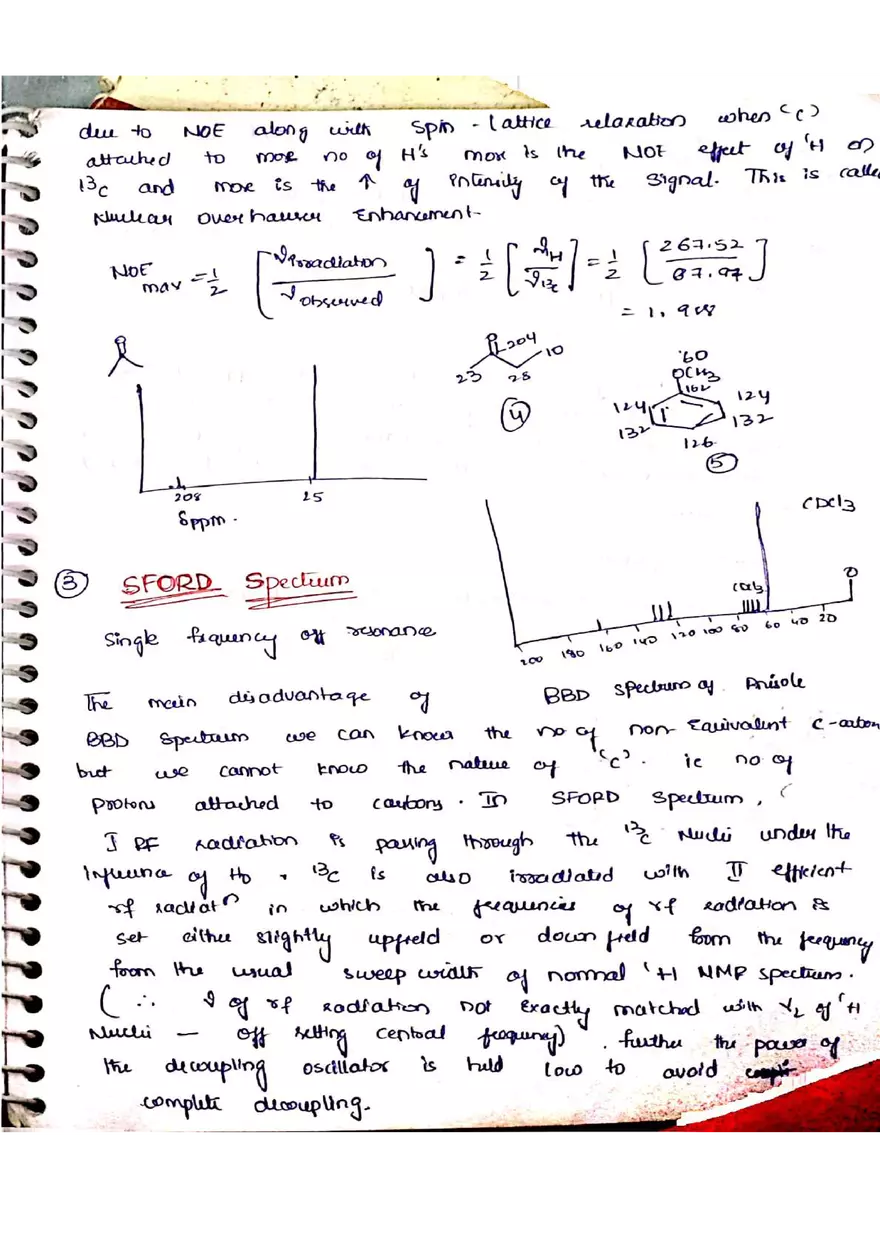 due to NOE along with Spin - Lattice relaxation when 'C'
attached to more no of H's more is the NOE effect of ¹H on
¹³C and more is the ↑ of Intensity of the Signal. This is called
Nuclear Overhauser Enhancement
NOE max = 1/2 [ϑ irradiation / ϑ observed] = 1/2 [ϑH / ϑ¹³C] = 1/2 [267.52 / 67.97]
= 1.98
204
10
23 28
④
60
OCH3
162
124 124
132 132
126
⑤
208 25
δppm.
CDCl3
CDCl3
0
200 180 160 140 120 100 80 60 40 20
BBD Spectrum of Anisole
③ SFORD Spectrum
Single frequency off resonance
The main disadvantage of
BBD Spectrum we can know the no of non Equivalent C-carbon
but we cannot know the nature of 'C'. ie no of
protons attached to carbons. In SFORD Spectrum,
I RF radiation is passing through the ¹³C Nuclei under the
Influence of H0, ¹³C is also irradiated with II efficient
rf radiatn in which the frequencies of rf radiation is
set either slightly upfield or down field from the frequency
from the usual sweep width of normal ¹H NMR spectrum.
(∴ ϑ of rf radiation not exactly matched with γ2 of ¹H
Nuclei — off setting central frequency). further the power of
the decoupling oscillator is held low to avoid
complete decoupling.